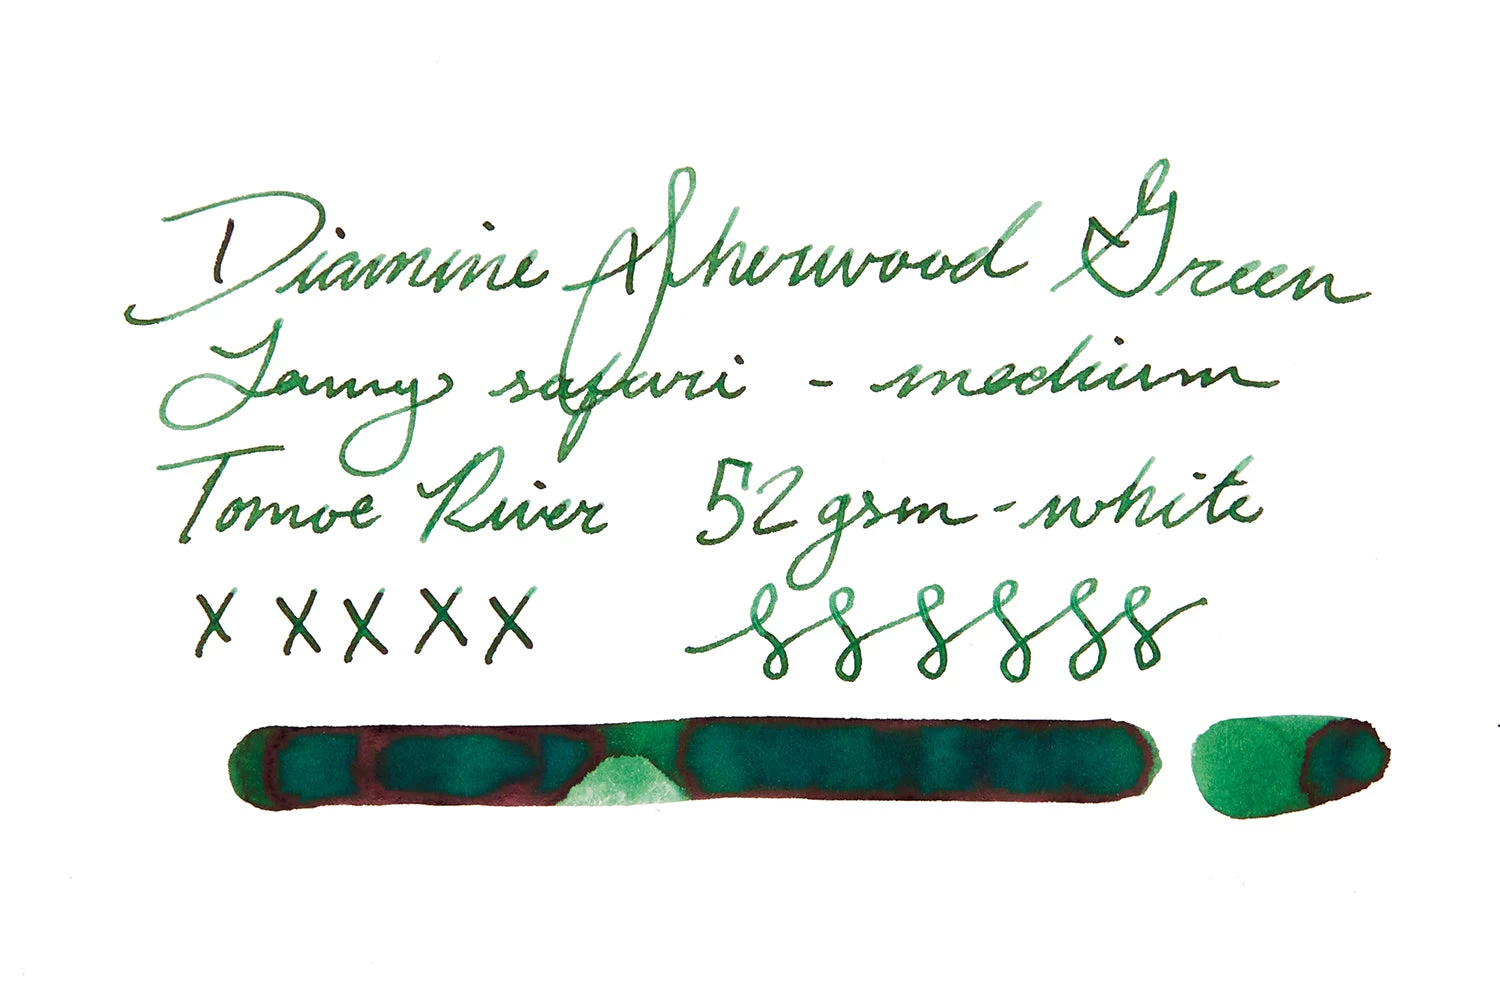 Diamine Sherwood Green
Lamy safari - medium
Tomoe River 52 gsm - white
x x x x x